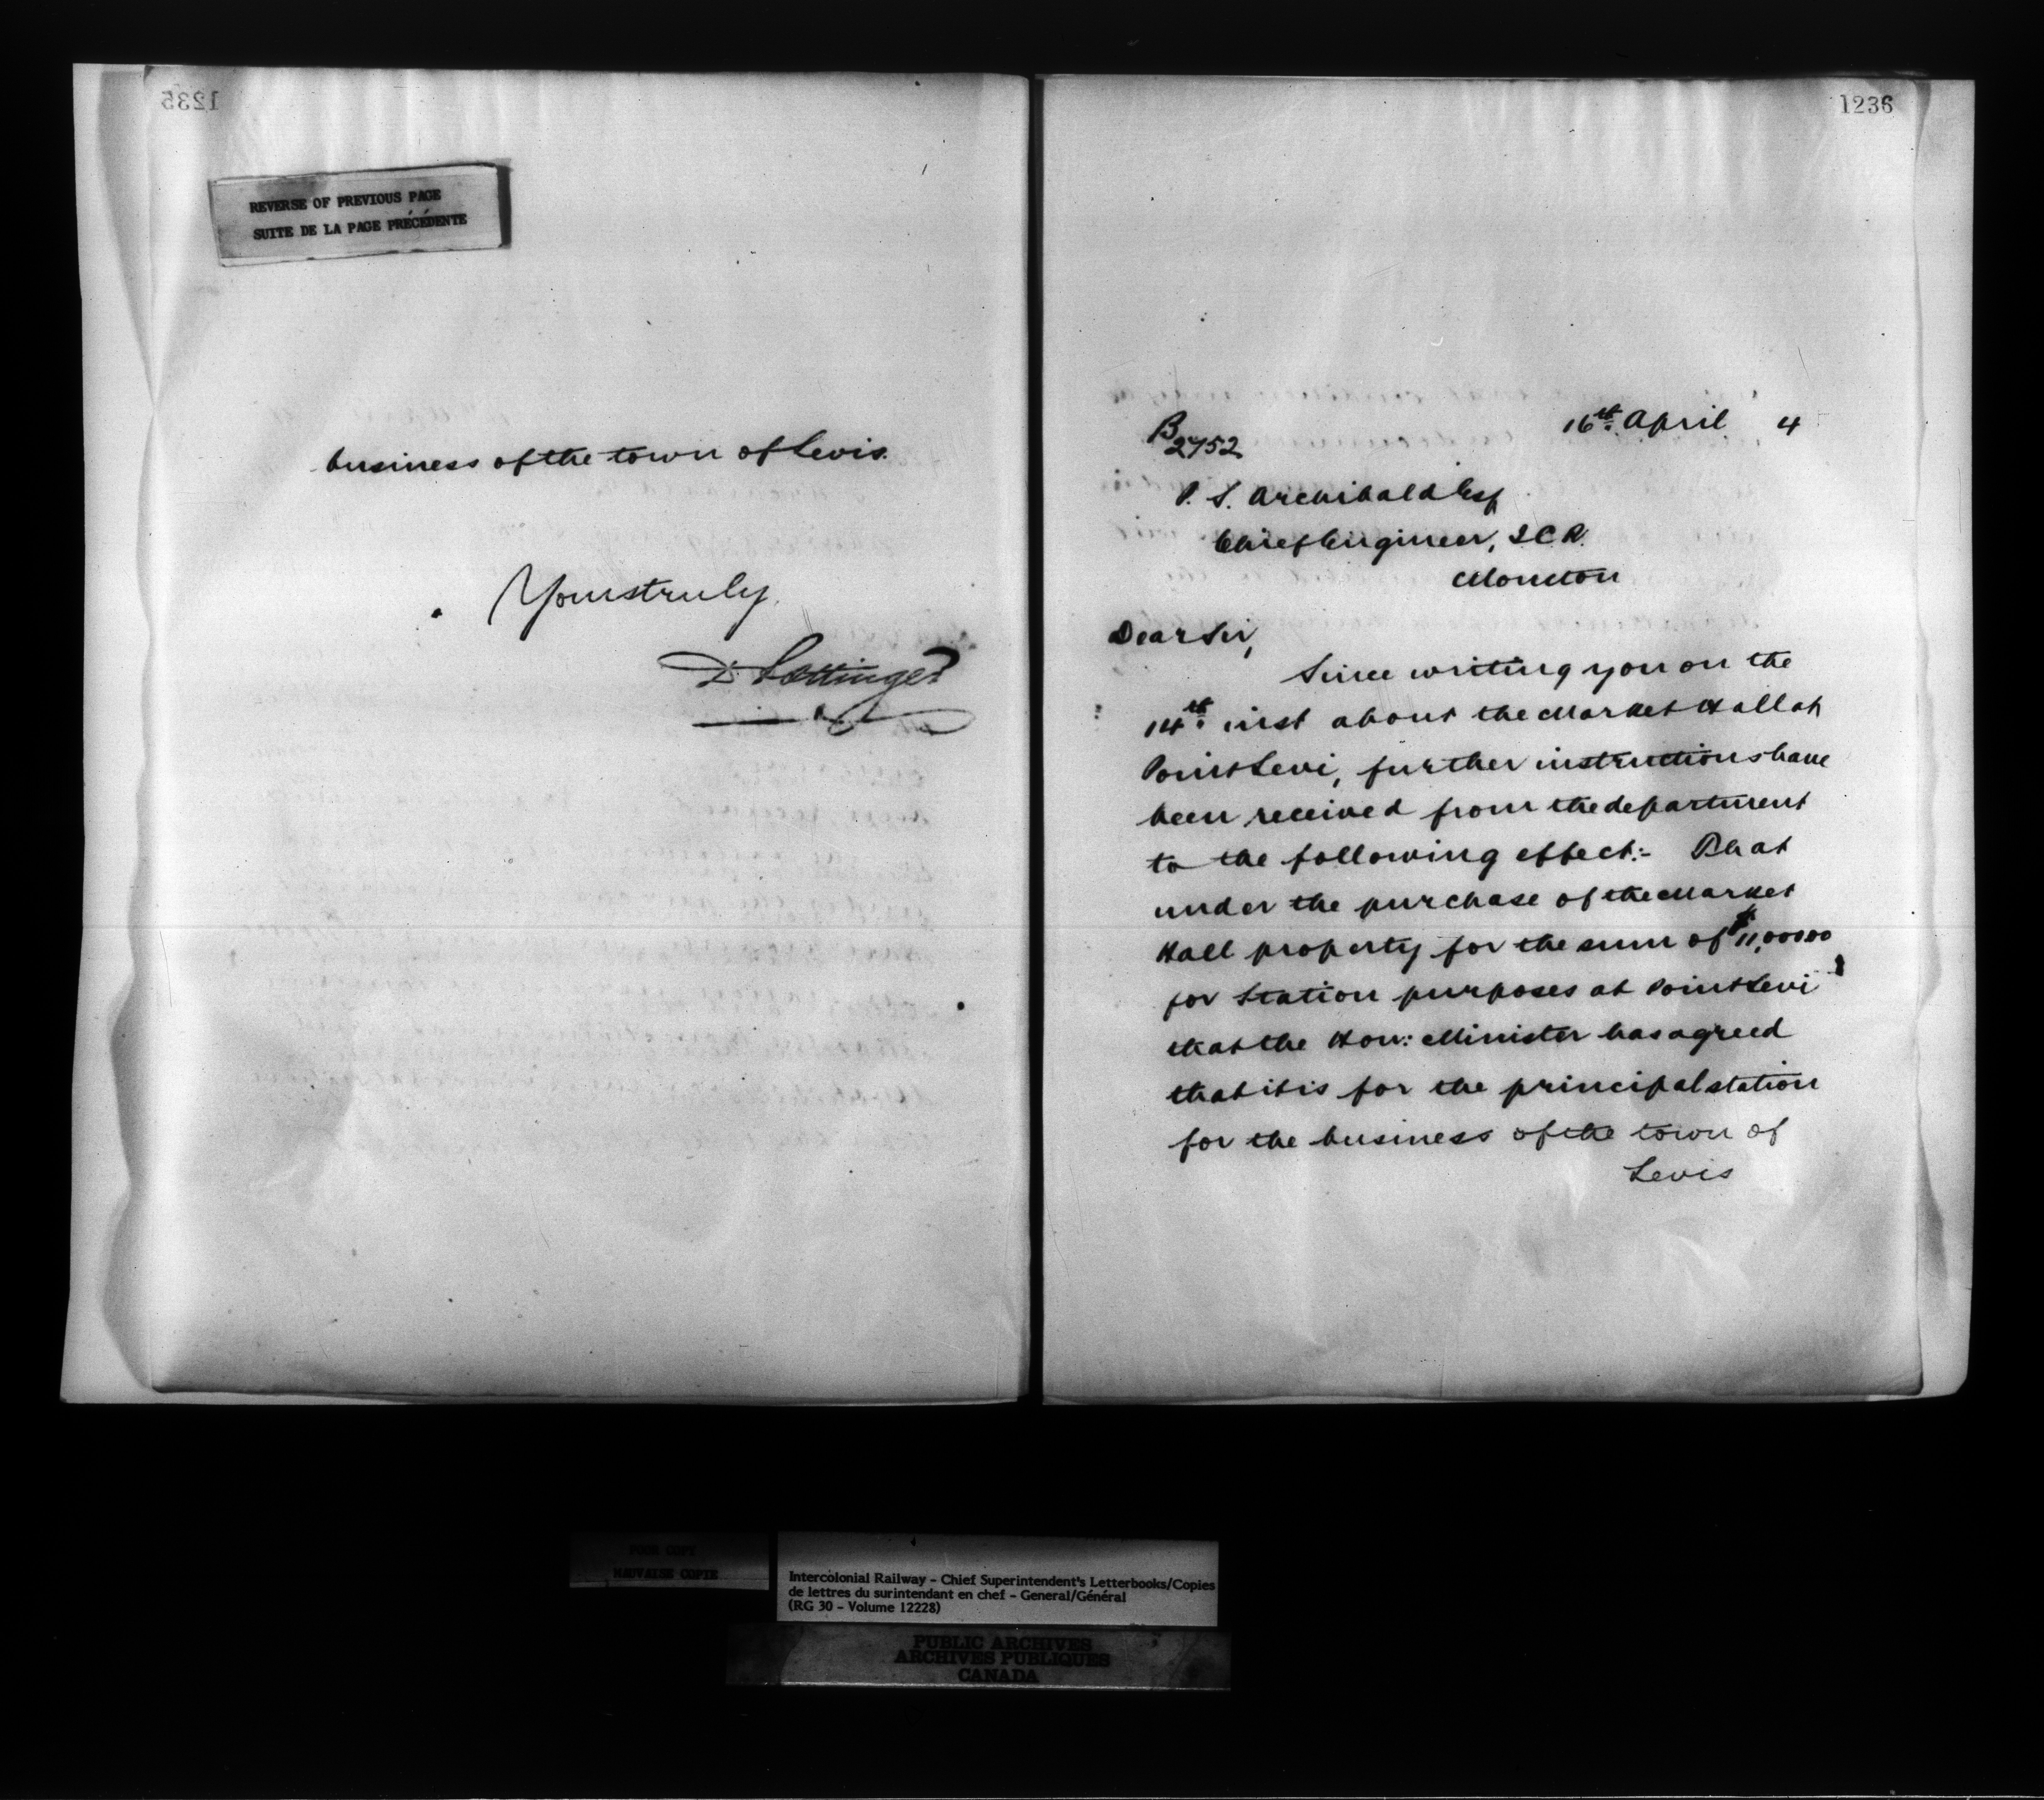 1235
REVERSE OF PREVIOUS PAGE
SUITE DE LA PAGE PRÉCÉDENTE
business of the town of Levis.
Yours truly,
D. Pottinger
1236
16th. April 4
B
2752
P. S. Archibald Esq
Chief Engineer, I.C.R.
Moncton
Dear Sir,
Since writing you on the
14th. inst about the Market Hall at
Point Levi, further instructions have
been received from the department
to the following effect:- That
under the purchase of the Market
Hall property for the sum of $11,00000
for Station purposes at Point Levi
that the Hon: Minister has agreed
that it is for the principal station
for the business of the town of
Levis
POOR COPY
MAUVAISE COPIE
Intercolonial Railway - Chief Superintendent's Letterbooks/Copies
de lettres du surintendant en chef - General/Général
(RG 30 - Volume 12228)
PUBLIC ARCHIVES
ARCHIVES PUBLIQUES
CANADA